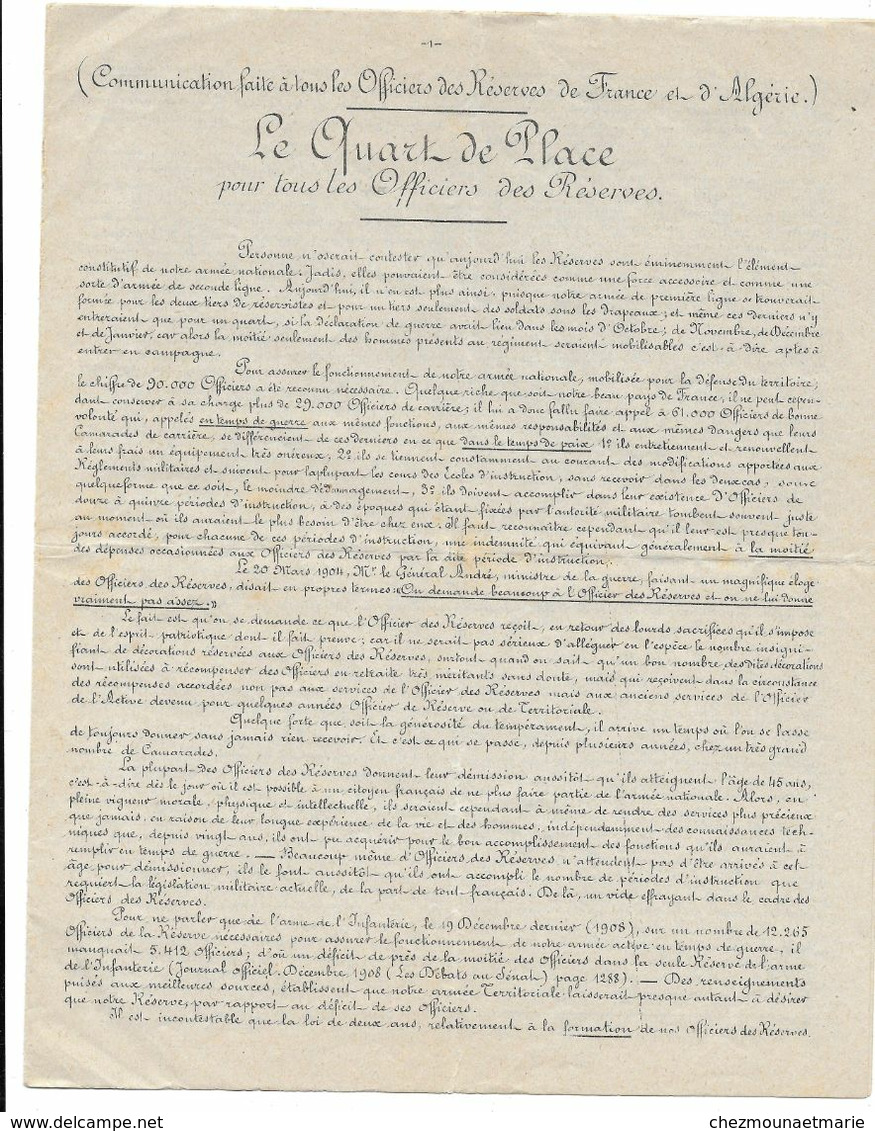 -1-
(Communication faite à tous les Officiers des Réserves de France et d'Algérie.)
Le Quart de Place
pour tous les Officiers des Réserves.
Personne n'oserait contester qu'aujourd'hui les Réserves sont éminemment l'élément
constitutif de notre armée nationale. Jadis, elles pouvaient être considérées comme une force accessoire et comme une
sorte d'armée de seconde ligne. Aujourd'hui, il n'en est plus ainsi, puisque notre armée de première ligne se trouverait
formée pour les deux tiers de réservistes et pour un tiers seulement des soldats sous les drapeaux; et même ces derniers n'y
entreraient que pour un quart, si la déclaration de guerre avait lieu dans les mois d'Octobre; de Novembre, de Décembre
et de Janvier, car alors la moitié seulement des hommes présents au régiment seraient mobilisables c'est-à dire aptes à
entrer en campagne.
Pour assurer le fonctionnement de notre armée nationale, mobilisée pour la défense du territoire;
le chiffre de 90.000 Officiers a été reconnu nécessaire. Quelque riche que soit notre beau pays de France, il ne peut cepen-
dant conserver à sa charge plus de 29.000 Officiers de carrière; il lui a donc fallu faire appel à 61.000 Officiers de bonne
volonté qui, appelés en temps de guerre aux mêmes fonctions, aux mêmes responsabilités et aux mêmes dangers que leurs
Camarades de carrière, se différencient de ces derniers en ce que dans le temps de paix 1º ils entretiennent et renouvellent
à leurs frais un équipement très onéreux; 2º ils se tiennent constamment au courant des modifications apportées aux
Règlements militaires et suivent pour la plupart les cours des Écoles d'instruction, sans recevoir dans les deux cas, sous
quelque forme que ce soit, le moindre dédommagement, 3º ils doivent accomplir dans leur existence d'Officiers de
douze à quinze périodes d'instruction, à des époques qui étant fixées par l'autorité militaire tombent souvent juste
au moment où ils auraient le plus besoin d'être chez eux. Il faut reconnaître cependant qu'il leur est presque tou-
jours accordé, pour chacune de ces périodes d'instruction, une indemnité qui équivaut généralement à la moitié
des dépenses occasionnées aux Officiers des Réserves par la dite période d'instruction.
Le 20 Mars 1904, Mr. le Général André, ministre de la guerre, faisant un magnifique éloge
des Officiers des Réserves, disait en propres termes: «On demande beaucoup à l'Officier des Réserves et on ne lui donne
vraiment pas assez.»
Le fait est qu'on se demande ce que l'Officier des Réserves reçoit, en retour des lourds sacrifices qu'il s'impose
et de l'esprit patriotique dont il fait preuve; car il ne serait pas sérieux d'alléguer en l'espèce le nombre insigni-
fiant de décorations réservées aux Officiers des Réserves, surtout quand on sait qu'un bon nombre des dites décorations
sont utilisées à récompenser des Officiers en retraite très méritants sans doute, mais qui reçoivent dans la circonstance
des récompenses accordées non pas aux services de l'Officier des Réserves mais aux anciens services de l'Officier
de l'Active devenu pour quelques années Officier de Réserve ou de Territoriale.
Quelque forte que soit la générosité du tempérament, il arrive un temps où l'on se lasse
de toujours donner sans jamais rien recevoir. Et c'est ce qui se passe, depuis plusieurs années, chez un très grand
nombre de Camarades.
La plupart des Officiers des Réserves donnent leur démission aussitôt qu'ils atteignent l'âge de 45 ans,
c'est-à-dire dès le jour où il est possible à un citoyen français de ne plus faire partie de l'armée nationale. Alors, en
pleine vigueur morale, physique et intellectuelle, ils seraient cependant à même de rendre des services plus précieux
que jamais, en raison de leur longue expérience de la vie et des hommes, indépendamment des connaissances tech-
niques que, depuis vingt ans, ils ont pu acquérir pour le bon accomplissement des fonctions qu'ils auraient à
remplir en temps de guerre. — Beaucoup même d'Officiers des Réserves n'attendent pas d'être arrivés à cet
âge pour démissionner, ils le font aussitôt qu'ils ont accompli le nombre de périodes d'instruction que
requiert la législation militaire actuelle, de la part de tout français. De là, un vide effrayant dans le cadre des
Officiers des Réserves.
Pour ne parler que de l'arme de l'Infanterie, le 19 Décembre dernier (1908), sur un nombre de 12.265
Officiers de la Réserve nécessaires pour assurer le fonctionnement de notre armée active en temps de guerre, il
manquait 5.412 Officiers; d'où un déficit de près de la moitié des Officiers dans la seule Réserve de l'arme
de l'Infanterie (Journal officiel. Décembre 1908 (Les Débats au Sénat) page 1288). — Des renseignements
puisés aux meilleures sources, établissent que notre armée Territoriale laisserait presque autant à désirer
que notre Réserve, par rapport au déficit de ses Officiers.
Il est incontestable que la loi de deux ans, relativement à la formation de nos Officiers des Réserves.
chezmounaetmarie